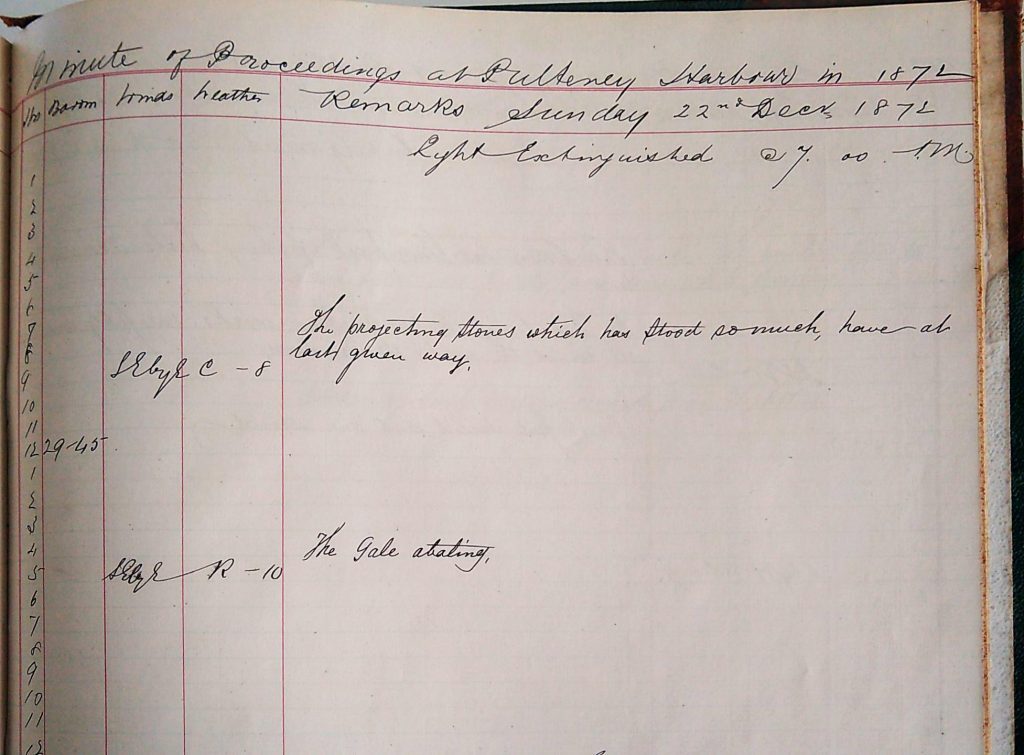 Minute of Proceedings at Pulteney Harbour in 1872
Hrs Barom Winds Weather Remarks Sunday 22nd Decr 1872
Light Extinguished @ 7. 00. A.M.
1
2
3
4
5
6
7
The projecting stones which has stood so much, have at
8
last given way.
SEbyE C - 8
9
10
11
12 29-45
1
2
3
4
The Gale abating,
5 SEbyE R - 10
6
7
8
9
10
11
12